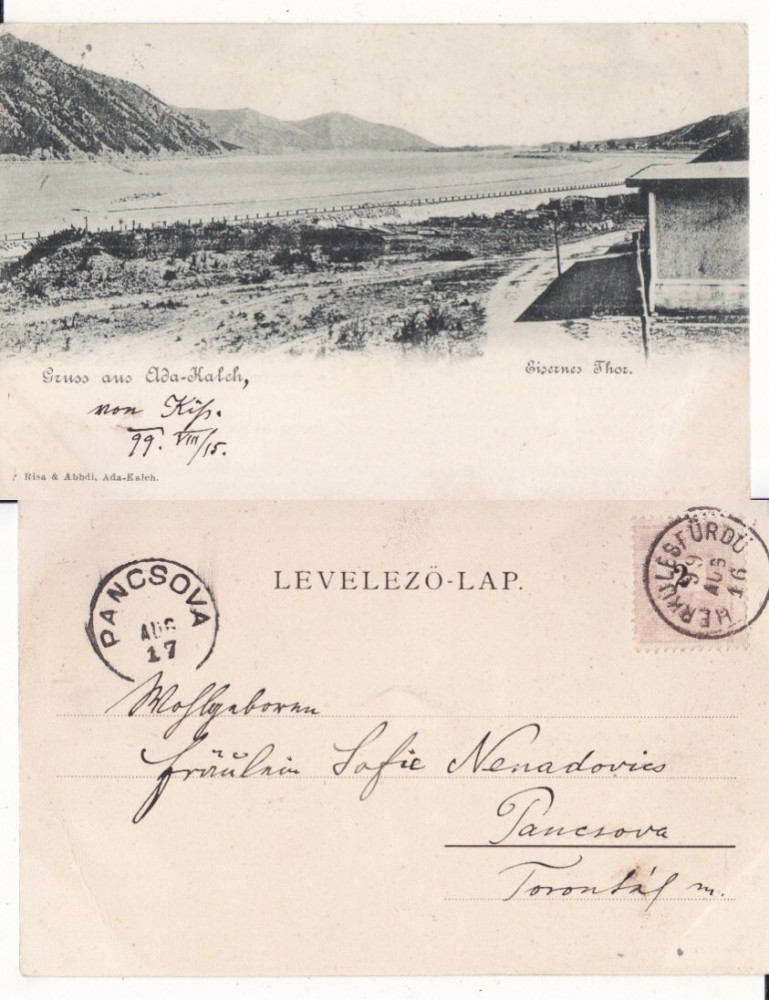 Gruss aus Ada-Kaleh,
Eisernes Thor.
von Kiss.
99. VIII/15.
Risa & Abbdi, Ada-Kaleh.
LEVELEZŐ-LAP.
PANCSOVA
AUG
17
HERKULESFÜRDŐ
99
AUG
16
2
Wohlgeboren
Fräulein Sofie Nenadovics
Pancsova
Torontál m.